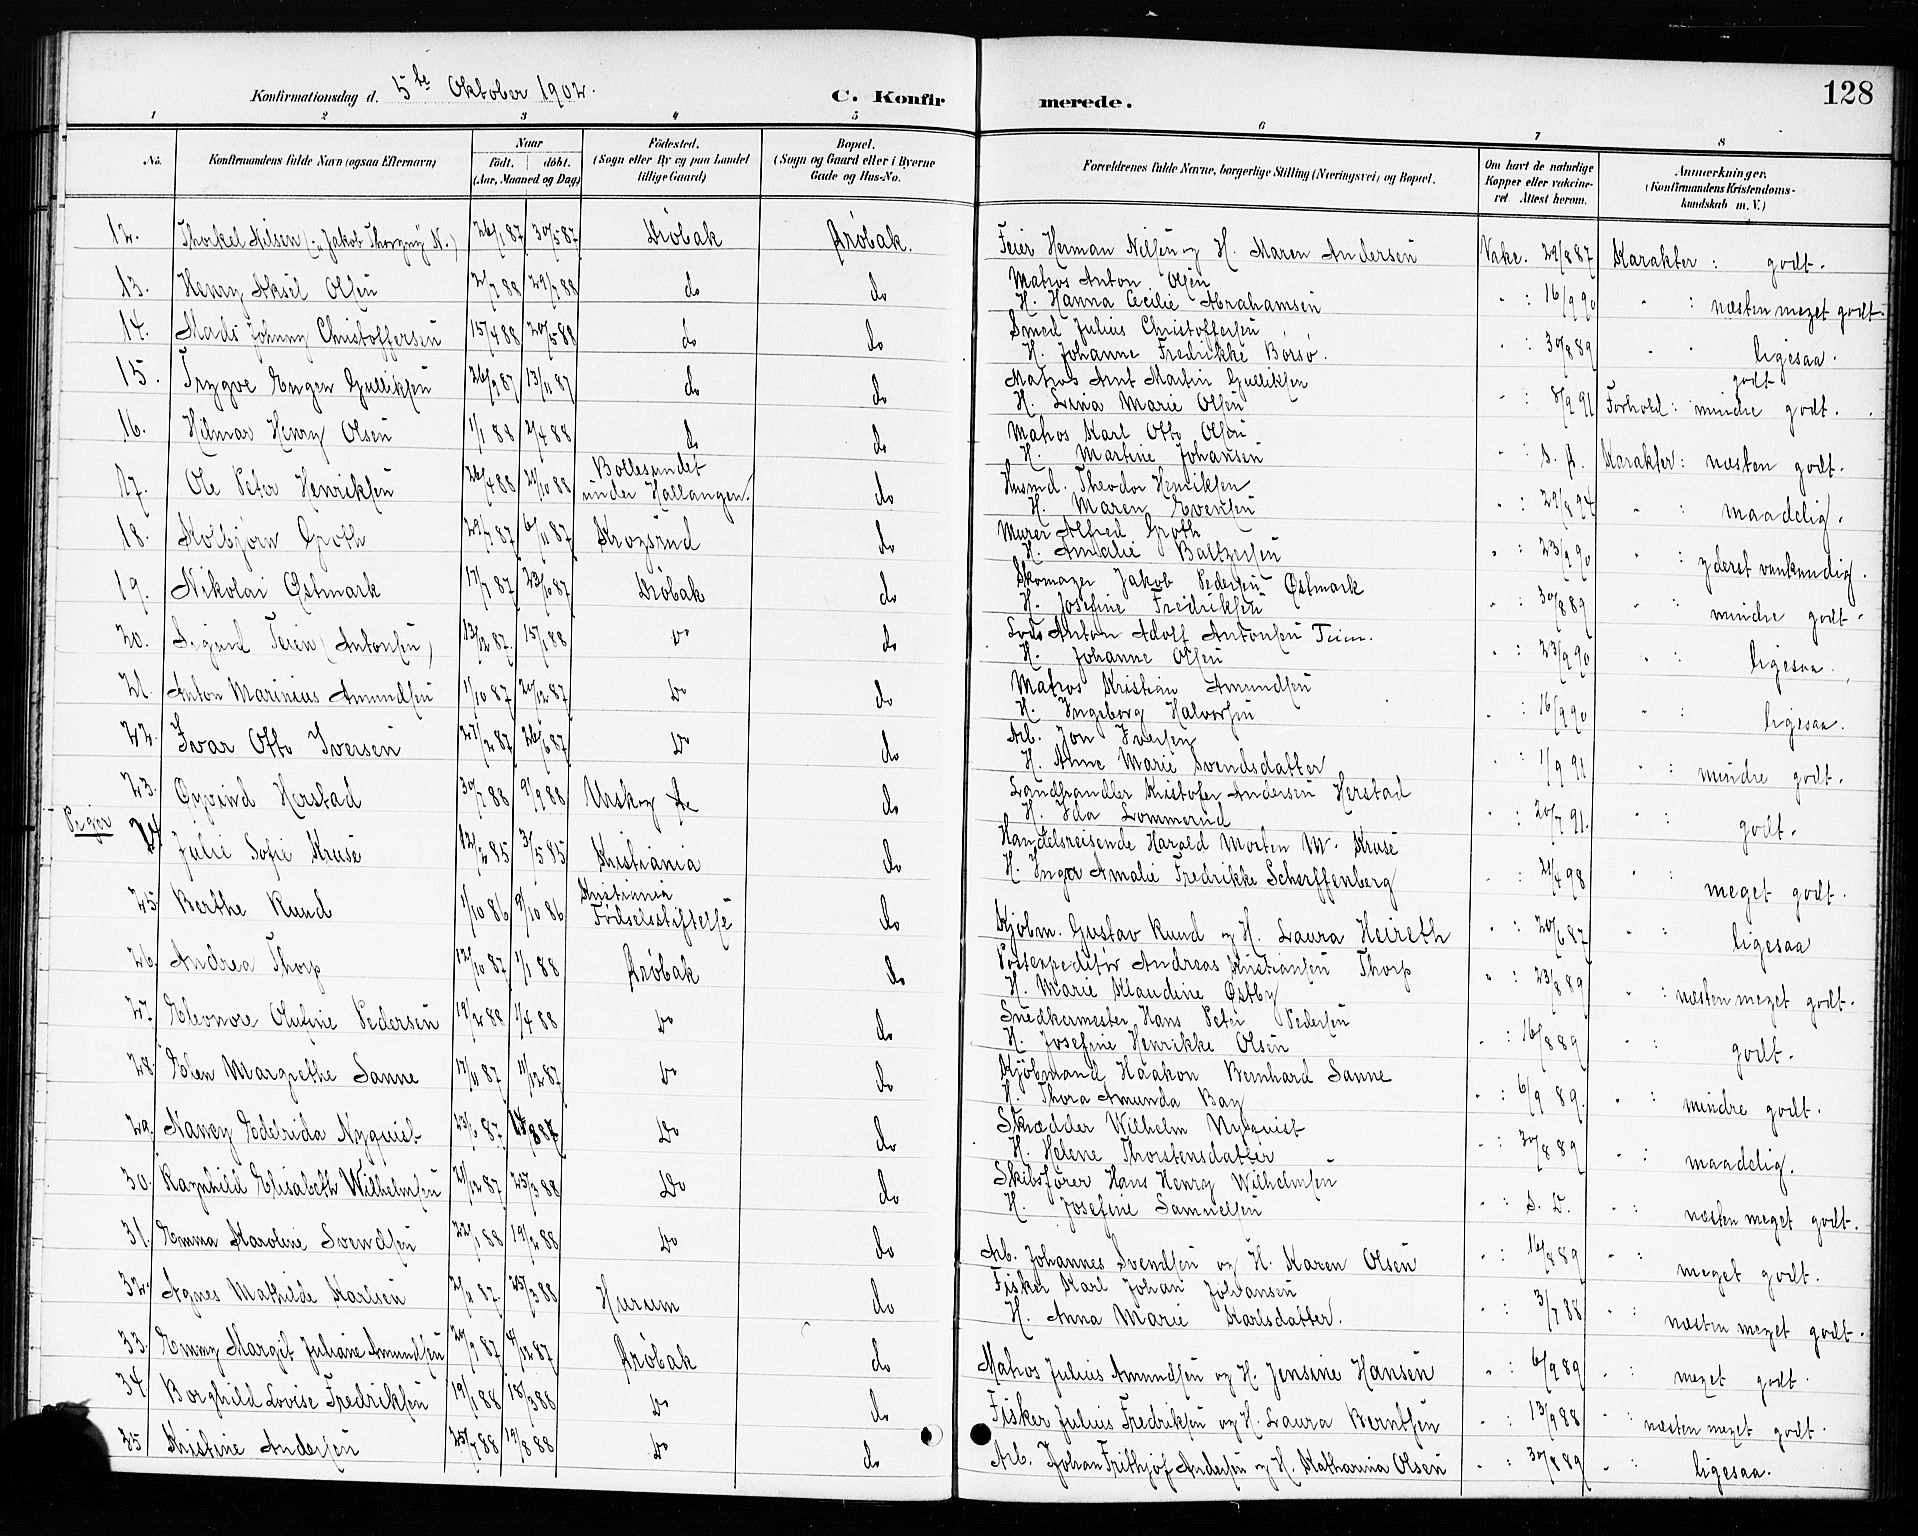 Konfirmationsdag d. 5te Oktober 1902.
C. Konfirmerede.
128
1 2 3 4 5 6 7 8
No.
Konfirmandens fulde Navn (ogsaa Efternavn)
Naar født. døbt. (Aar, Maaned og Dag)
Födested. (Sogn eller By og paa Landet tillige Gaard)
Bopæl. (Sogn og Gaard eller i Byerne Gade og Hus-No.
Forældrenes fulde Navne, borgerlige Stilling (Næringsvei) og Bopæl.
Om havt de naturlige Kopper eller vakcineret. Attest herom.
Anmærkninger. (Konfirmandens Kristendomskundskab m. V.)
12. Thorkel Nilsen (: Jakob Thorgny N.) 26/1 87 30/5 87 Drøbak Drøbak. Feier Herman Nilsen og H. Maren Andersen Vakc. 29/8 87 Karakter : godt.
13. Henry Aksel Olsen 2/7 88 29/7 88 do do Matros Anton Olsen H. Hanna Cecilie Abrahamsen " : 16/9 90 " : næsten meget godt.
14. Mads Johnny Christoffersen 15/4 88 20/5 88 do do Smed Julius Christoffersen H. Johanne Fredrikke Borsø. " : 30/8 89 " " ligesaa.
15. Trygve Eugen Gulliksen 26/9 87 13/11 87 do do Matros Arnt Martin Gulliksen H. Lina Marie Olsen " : 8/9 91 Forhold : mindre godt. godt
16. Hilmar Henry Olsen 1/1 88 2/4 88 do do Matros Karl Otto Olsen H. Martine Johansen " : s. D. Karakter : næsten godt.
17. Ole Peter Henriksen 26/4 88 21/10 88 Bollesundet under Hallangen. do Husmd. Theodor Henriksen H. Maren Evensen " : 29/8 94 " : maadelig.
18. Kolbjørn Groth 29/7 87 6/11 87 Krogsrud do Murer Alfred Groth H. Amalie Baltzersen " : 23/9 90 " : yderst vankundig.
19. Nikolai Østmark 17/7 87 23/10 87 Drøbak do Skomager Jakob Pedersen Østmark H. Josefine Fredriksen " : 30/8 89 " : mindre godt.
20. Sigurd Teien (Antonsen) 13/12 87. 15/1 88 Do do Lods Anton Adolf Antonsen Teien. H. Johanne Olsen " : 23/9 90 " : ligesaa.
21. Anton Marinius Amundsen 1/10 87 20/12 87 Do do Matros Kristian Amundsen H. Ingeborg Halvorsen " : 16/9 90 " : ligesaa.
22. Ivar Otto Iversen 27/2 87 26/6 87 Do do Arb. Jon Iversen H. Anne Marie Svendsdatter " : 1/9 91 " : mindre godt.
23. Øyvind Herstad 30/7 88 9/9 88 do Landhandler Kristofer Andersen Herstad H. Ida Lommerud " : 20/7 91. " : godt.
Piger
24 Julie Sofie Kruse 12/2 85 3/5 85 Kristiania do Handelsreisende Harald Morten M. Kruse H. Inga Amalie Fredrikke Scharffenberg " : 21/4 98 " : meget godt.
25 Berthe Ruud 1/10 86 9/10 86 Kristiania Fødselsstiftelse do Kjøbm. Gustav Ruud og H. Laura Heireth " : 20/6 87 " : ligesaa
26. Andrea Thorp 12/10 87 1/1 88 Drøbak do Postexpeditør Andreas Kristiansen Thorp H. Marie Klaudine Østby " : 23/8 89 " : næsten meget godt.
27. Eleonore Olufine Pedersen 19/2 88 1/4 88 Do do Snedkermester Hans Peter Pedersen H. Josefine Henrikke Olsen " : 16/8 89 " : godt.
28. Ellen Margrethe Sanne 17/11 87 11/12 87 Do do Kjøbmand Haakon Bernhard Sanne H. Thora Amunda Bay " : 6/9 89. " : mindre godt.
29. Nancy Edelrida Nyquist 23/6 87 14/8 87 Do do Skrædder Wilhelm Nyquist H. Helene Thorstensdatter " : 30/8 89 " : maadelig.
30. Ragnhild Elisabeth Wilhelmsen 21/12 87 25/3 88 Do do Skibsfører Hans Henry Wilhelmsen H. Josefine Samuelsen " : s. D. " : næsten meget godt.
31. Emma Karoline Svendsen 22/1 88 19/2 88 Do do Arb. Johannes Svendsen og H. Karen Olsen " : 16/8 89 " : meget godt.
32. Agnes Mathilde Karlsen 21/11 87. 25/3 88 Hurum do Fisker Karl Johan Johansen H. Anna Marie Karlsdatter. " : 3/7 88 " : næsten meget godt.
33. Emmy Margit Juliane Amundsen 20/9 87 4/12 87 Drøbak do Matros Julius Amundsen og H. Jensine Hansen " : 6/9 89 " : meget godt.
34. Borghild Lovise Fredriksen 19/1 88 18/3 88 Do do Fisker Julius Fredriksen og H. Laura Berntsen " : 13/9 88 " : næsten meget godt.
35 Kristine Andersen 25/7 88 19/8 88 Do do Arb. Johan Frithjof Andersen og H. Katharina Olsen " : 30/8 89 " : ligesaa.